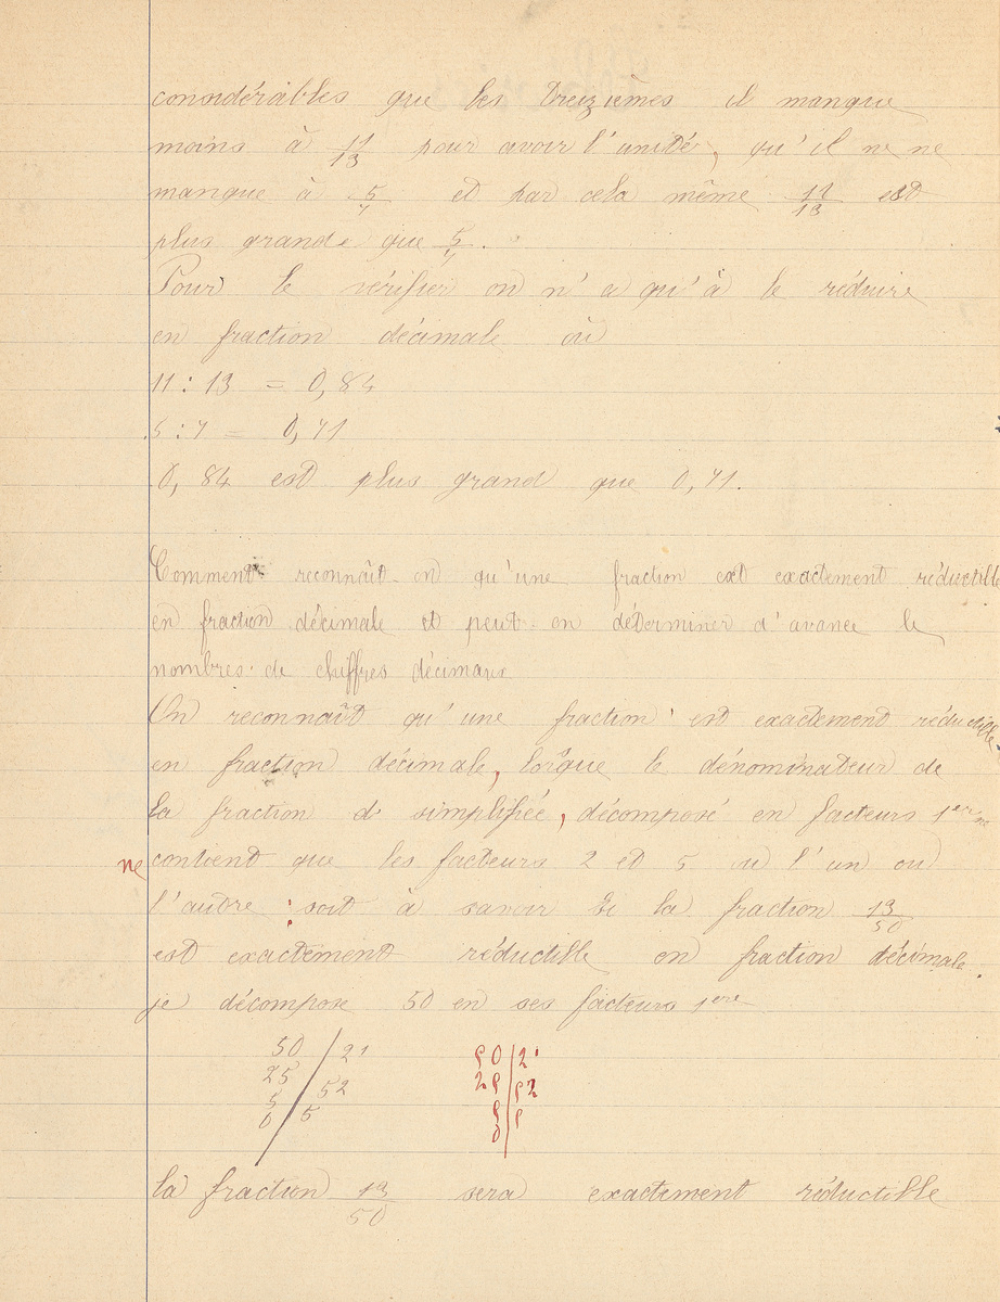 considérables que les treizièmes il manque
moins à 11/13 pour avoir l'unité, qu'il ne ne
manque à 5/7 et par cela même 11/13 est
plus grande que 5/7.
Pour le vérifier on n'a qu'à le réduire
en fraction décimale où
11 : 13 = 0,84
5 : 7 = 0,71
0,84 est plus grand que 0,71.
Comment reconnaît-on qu'une fraction est exactement réductible
en fraction décimale et peut-on déterminer d'avance le
nombres de chiffres décimaux
On reconnaît qu'une fraction est exactement réductible
en fraction décimale, lorque le dénominateur de
la fraction simplifiée, décomposé en facteurs 1ers
ne contient que les facteurs 2 et 5 ou l'un ou
l'autre : soit à savoir si la fraction 13/50
est exactement réductible en fraction décimale.
je décompose 50 en ses facteurs 1ers
50 / 21 50 | 2'
25 / 52 25 | 52
5 / 5 5 | 5
0 0
la fraction 13/50 sera exactement réductible